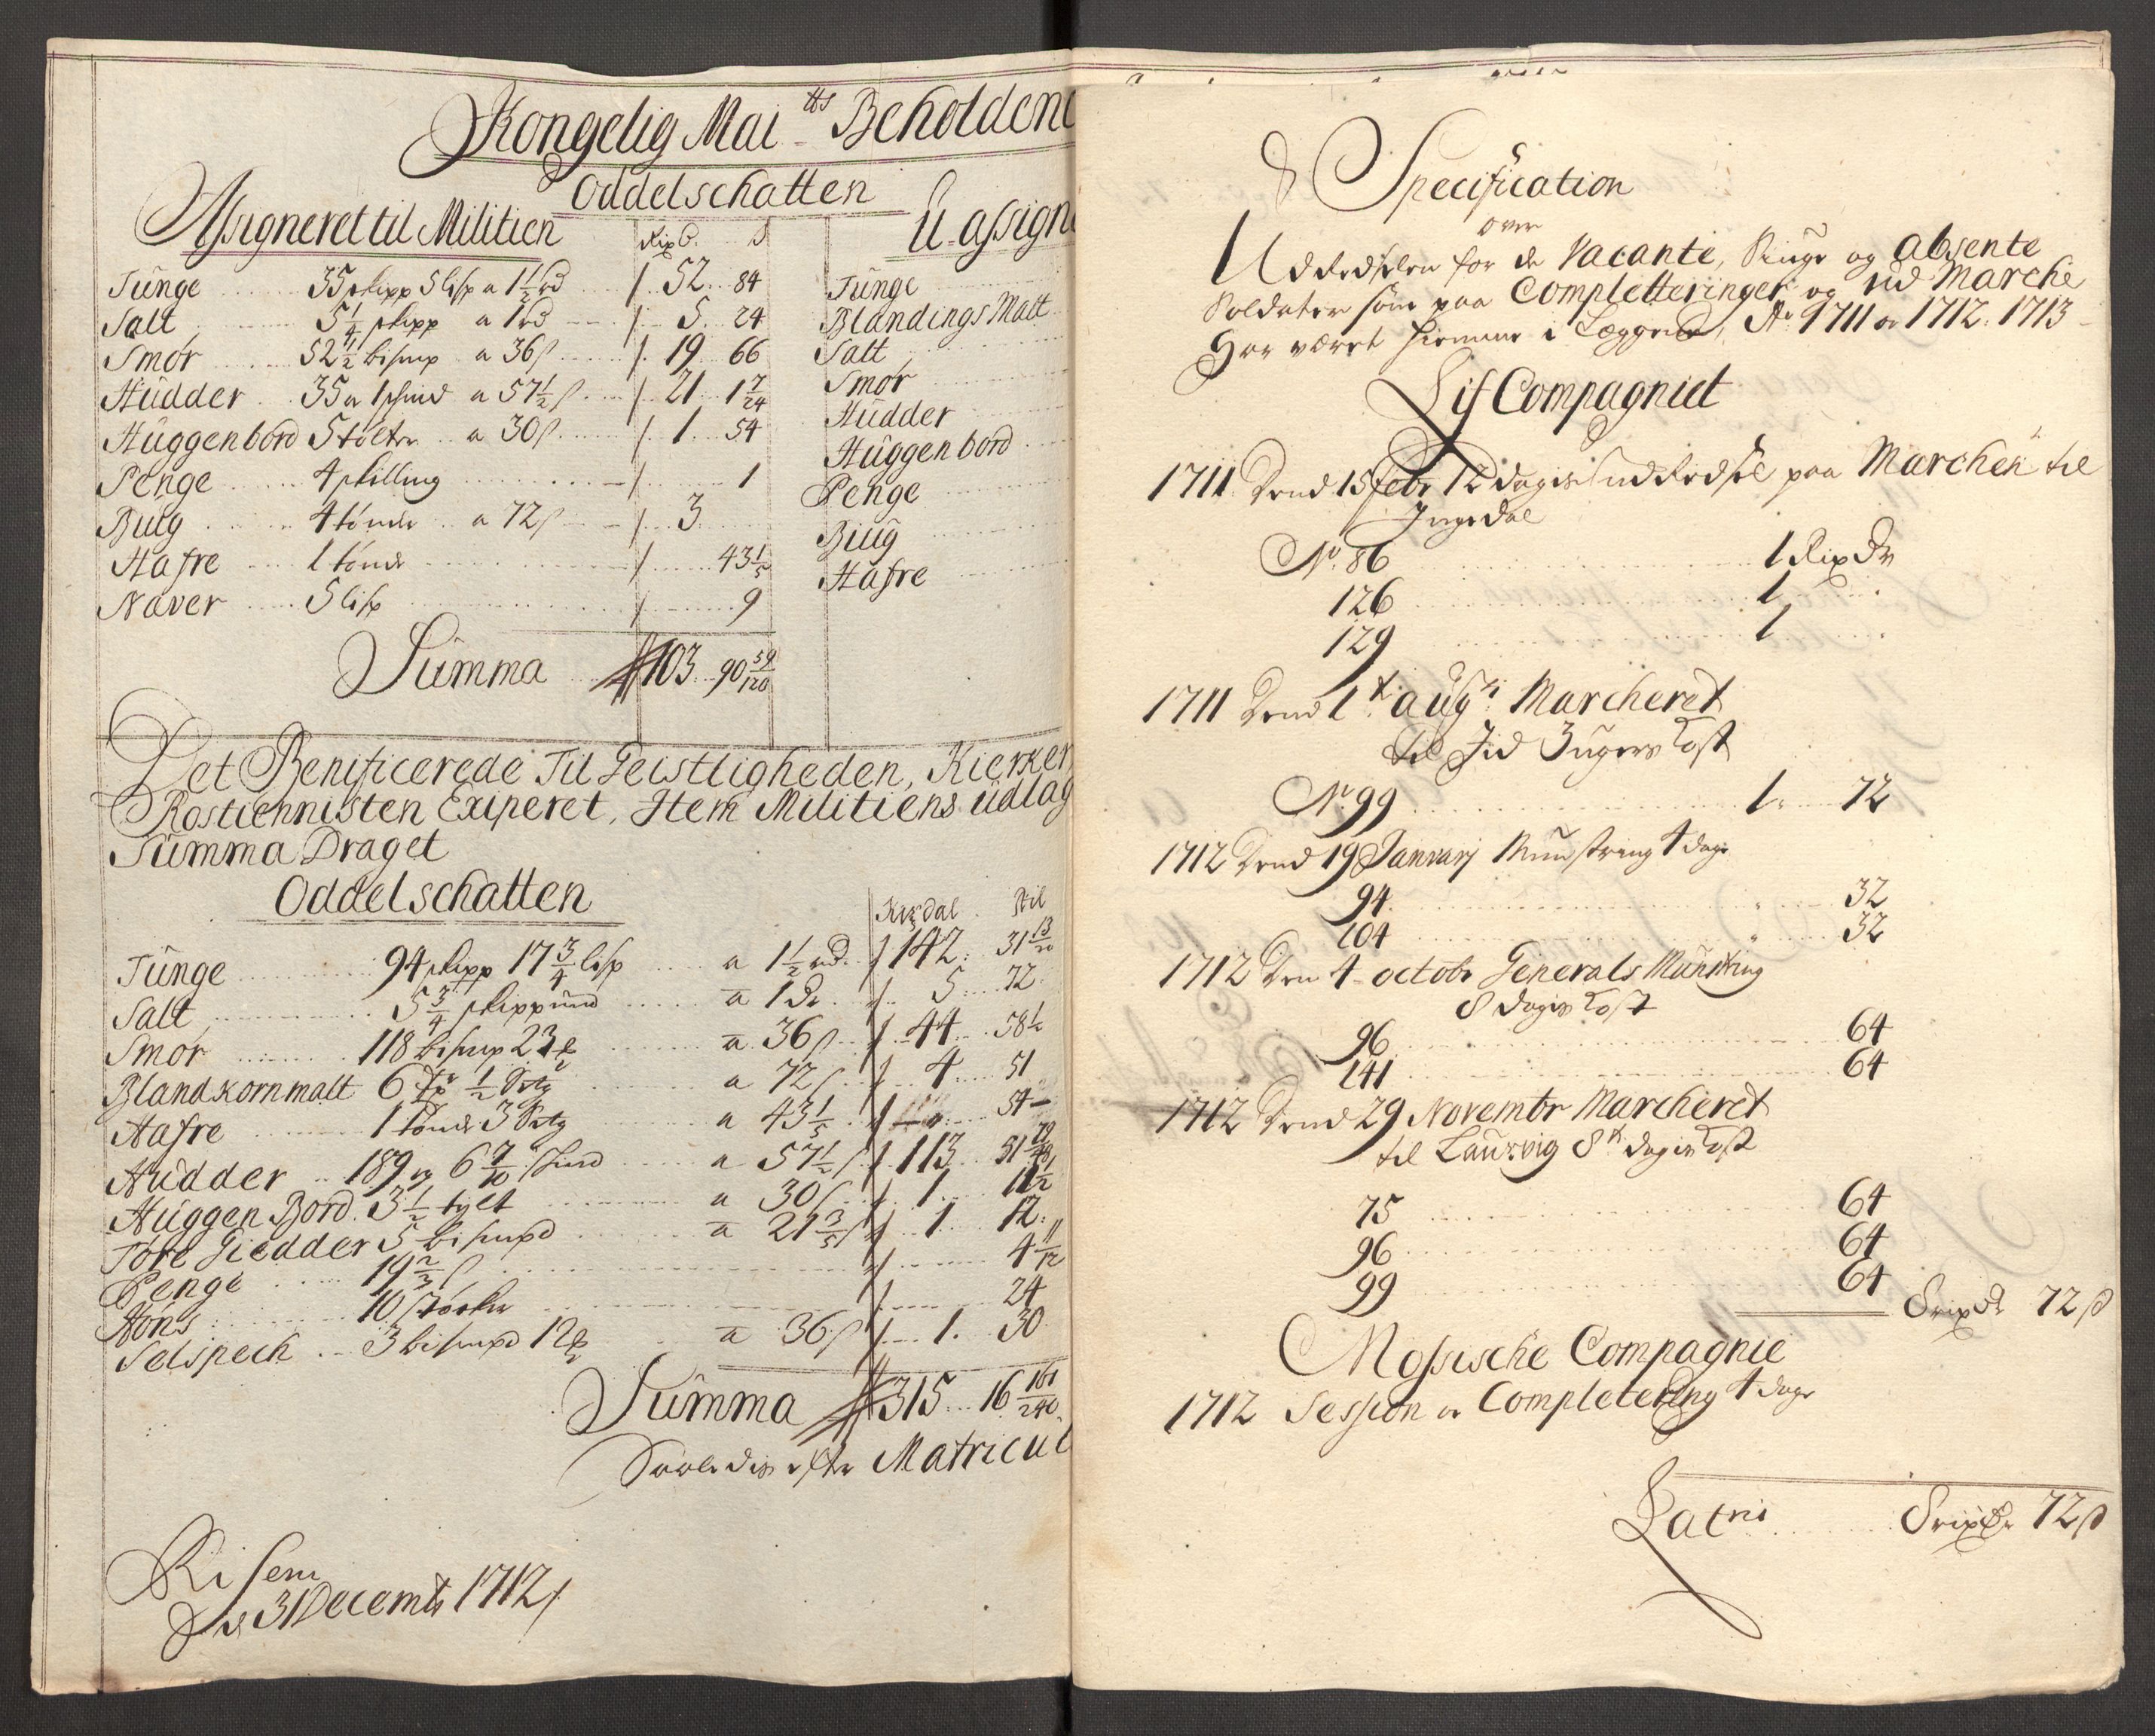 Kongelig Mai tts Beholdene
Oddelschatten
Assigneret til Militien
Rixd. s
U-assign
Tunge 35 skipp 5 lisp a 1½ rd 52 84
Salt 5¼ skipp a 1 rd 5 24
Smør 52½ bismp a 36 s 19 66
Hudder 35 a 1 skind a 57½ s 21 1 7/24
Huggenbord 5 tolter a 30 s 1 54
Penge 4 skilling 1
Biug 4 tønde a 72 s 3
Hafre 1 tønde 43 1/5
Naver 5 lisp 9
Summa 103 90 59/120
Tunge
Blandings Malt
Salt
Smør
Hudder
Huggenbord
Penge
Biug
Hafre
Det Benificerede Til Geistligheden, Kierker
Rostiennisten Exiperet, Item Militiens udlag
Summa Draget
Oddelschatten
Rixdal Skil
Tunge 94 skipp 17¾ lisp a 1½ rd. 142 31 13/20
Salt 5¾ skippund a 1 dr 5 72
Smør 118 bismp 23 a 36 s 44 58½
Blandkornmalt 6 ½ Setg a 72 s 4 51
Hafre 1 tønde 3 Setg a 43 1/5 54
Hudder 189 og 6 7/10 skind a 57½ s 113 51
Huggen Bord 3½ tylt a 30 s 1 11½
Tøre Giedder 5 bismpd a 21 3/5 s 1 12
Penge 19⅔ s 4 11/12
Høns 10 stører 24
Selspech 3 bismpd 12 a 36 s 1 30
Summa 315 16 161/240
Saaledis efter Matricul
Risem
d 31 Decembr 1712
Specification
over
Udredselen for de Vacante, Siuge og absente
Soldater som paa Completteringer og ud Marche
Har været hiemme i Læggene, Ao 1711 og 1712. 1713
Lif Compagniet
1711 Dend 15 Febr 12 dagis udredsel paa Marchen til
Ingedal
No. 86 1 Rixdr
126 1
129 1
1711 Dend 1t augti Marcheret
til Jid 3 ugers Kost
No. 99 1 72
1712 Dend 19 Januarj Munstring 4 dage
94 32
104 32
1712 Den 4 octobr Generals Munstring
8 dagis Kost
96 64
141 64
1712 Dend 29 Novembr Marcheret
til Laurvig 8te dagis Kost
75 64
96 64
99 64
8 rixdr 72 s
Mossische Compagnie
1712 Session og Completering 4 dage
Latris 8 rixdr 72 s